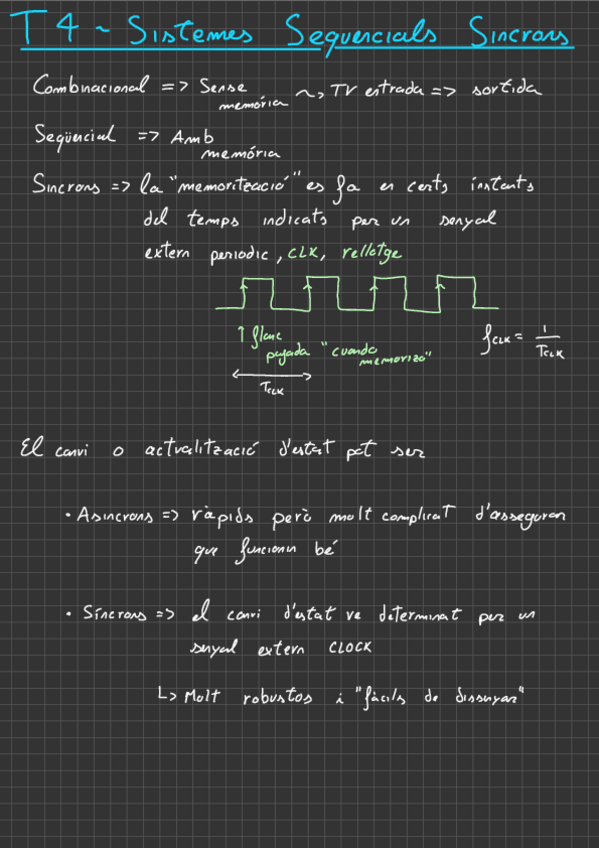 T4 ~ Sistemes Sequencials Síncrons
Combinacional => Sense memória ~> TV entrada => sortida
Seqüencial => Amb memória
Síncrons => la "memorització" es fa en certs instants
del temps indicats per un senyal
extern periodic, CLK, rellotge
↑ flanc
pujada "cuando memorizo"
fCLK = 1/TCLK
TCLK
El canvi o actualització d'estat pot ser
• Asíncrons => ràpids però molt complicat d'asseguran
que funcionin bé
• Síncrons => el canvi d'estat ve determinat per un
senyal extern CLOCK
↳ Molt robustos i "fàcils de dissenyar"